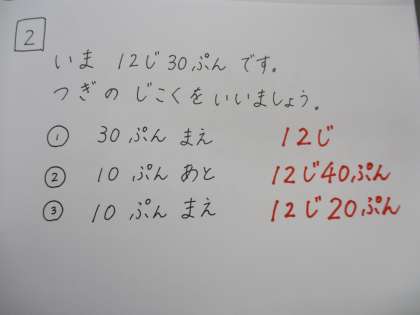 2
いま 12じ30ぷん です。
つぎの じこくを いいましょう。
① 30 ぷん まえ 12じ
② 10 ぷん あと 12じ40ぷん
③ 10 ぷん まえ 12じ20ぷん